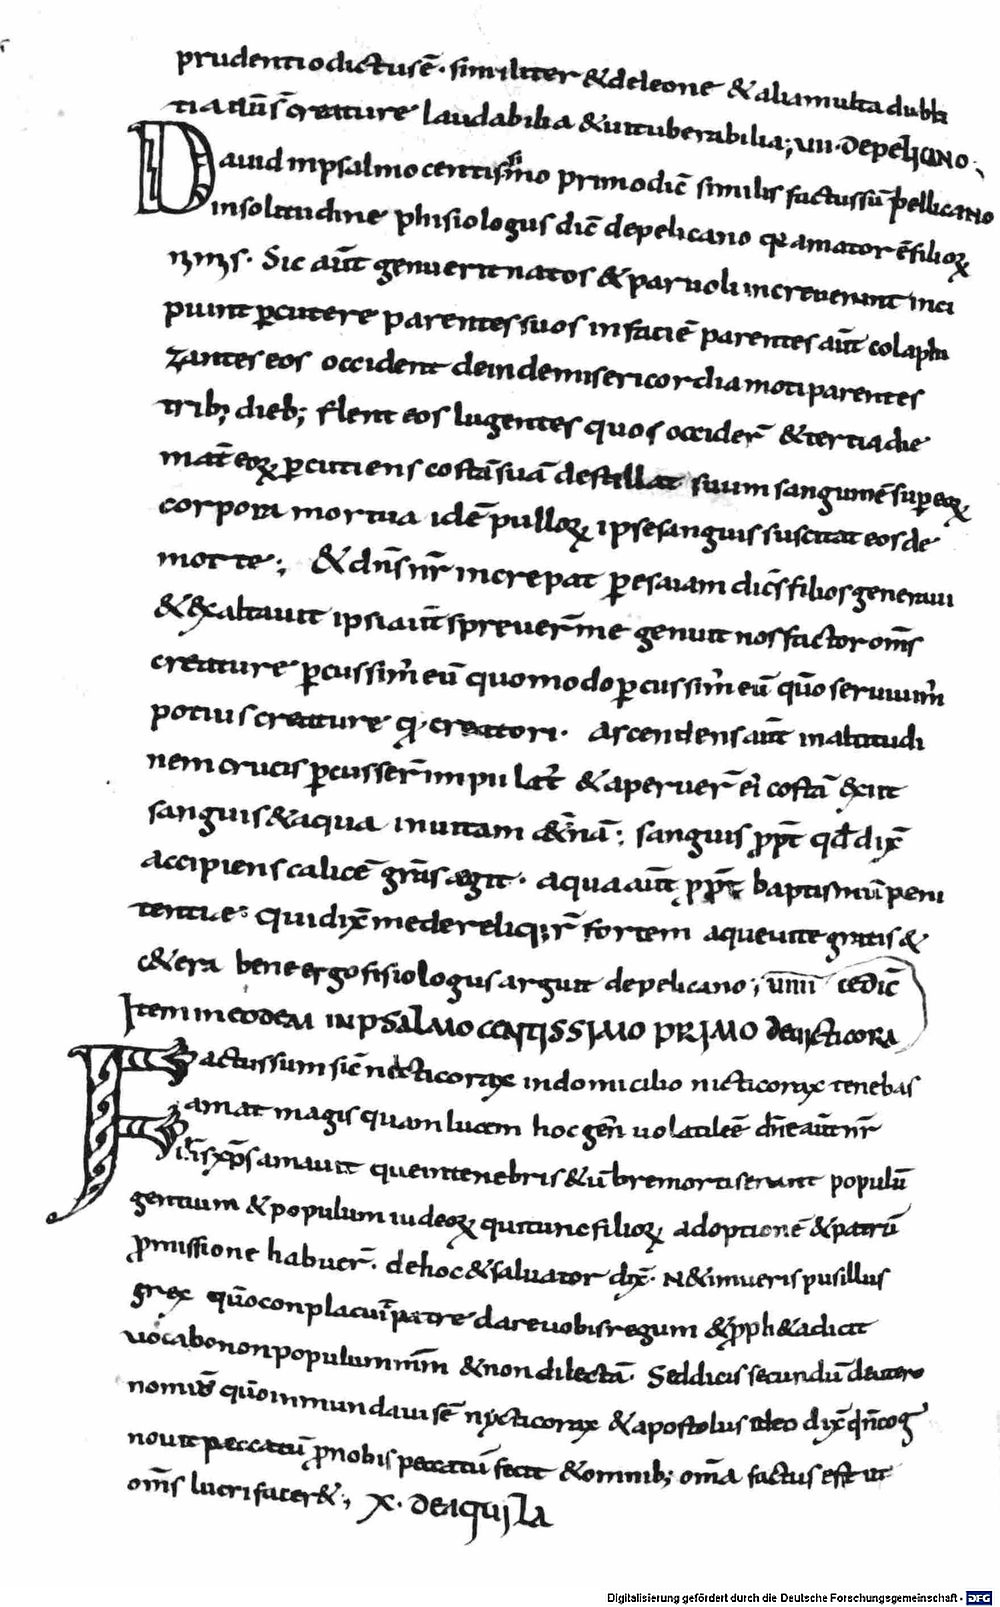 prudentiodictusē· similiter &deleone &aliamulta dubla
tia aūs̄ creature laudabilia &uituberabilia; VIII· DEPELICANO·
Dauid inpsalmo centisimo primo dic̄ similis factussū pellicano
insolitudine phisiologus dic̄ depelicano qa amator ēfilioꝝ
nimis· Sic aūt genuerit natos &paruoli increuerunt inci
piunt ꝑcutere parentes suos infaciē parentes aūt colaphi
zantes eos occident deinde misericordia motiparentes
trib; dieb; flent eos lugentes quos occider̄ &tertiadie
mat̄ eoꝝ ꝑcutiens costā suā destillat suum sanguinē sup eoꝝ
corpora mortua idē pulloꝝ ipsesanguis suscitat eosde
morte; &dn̄s nr̄ increpat ꝑesaiam dic̄s filios generaui
&exaltauit ipsi aūt spreuer̄ me genuit nos factor om̄s
creature ꝑcussim̄ eū quomodo ꝑcussim̄ eū quō seruiuim̄
potius creature q̄ creatori· Ascendens aūt inaltitudi
nem crucis ꝑcusser̄ impii lat̄ &aperuer̄ ei costā exiit
sanguis &aqua inuitam &̄nā; sanguis ꝓpt̄ qđ dix̄
accipiens calicē gr̄as egit· aqua aūt ꝓpt̄ baptismū peni
tentie· quidix̄ me dereliq;r̄ fortem aque uite gratis &
c&era bene ergo fisiologus arguit depelicano; VIIII cedic̄
Item ineodem INPSALMO CENTISSIMO PRIMO denicticora
Factussum sic̄ necticorax indomicilio nicticorax tenebas
amat magis quam lucem hoc gen̄ uolatileē dn̄e aūt nr̄
ih̄s xp̄s amauit queintenebris &ūbremortiserunt populū
gentium &populum iudeoꝝ quitunc filioꝝ adoptionē &patrū
ꝓmissione habuer̄· dehoc &saluator dix̄· N&imueris pusillus
grex quō conplacui patre dareuobis regum &ꝓph&a dicit
uocabo non populum m̄m &non dilectā· Seddicis secundū deutero
nomiō quō inmundauisē nycticorax &apostolus ideo dix̄ qn̄ cog
nouit peccatū ꝓnobis peccatū fecit &omnib; om̄a factus est ut
om̄s lucrifacer&; X· DEAQUILA
Digitalisierung gefördert durch die Deutsche Forschungsgemeinschaft - DFG